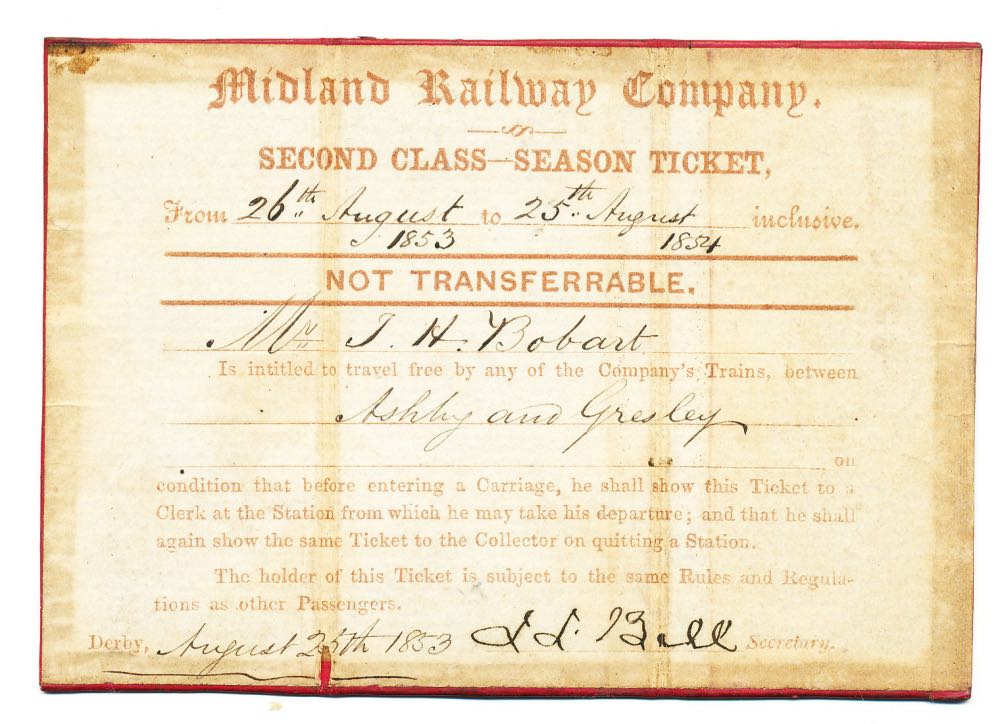 Midland Railway Company.
SECOND CLASS—SEASON TICKET,
From 26th August to 25th August inclusive.
1853 1854
NOT TRANSFERRABLE.
Mr J. H. Bobart
Is intitled to travel free by any of the Company's Trains, between
Ashby and Gresley
on
condition that before entering a Carriage, he shall show this Ticket to a
Clerk at the Station from which he may take his departure; and that he shall
again show the same Ticket to the Collector on quitting a Station.
The holder of this Ticket is subject to the same Rules and Regula-
tions as other Passengers.
Derby, August 25th 1853 Bell Secretary.